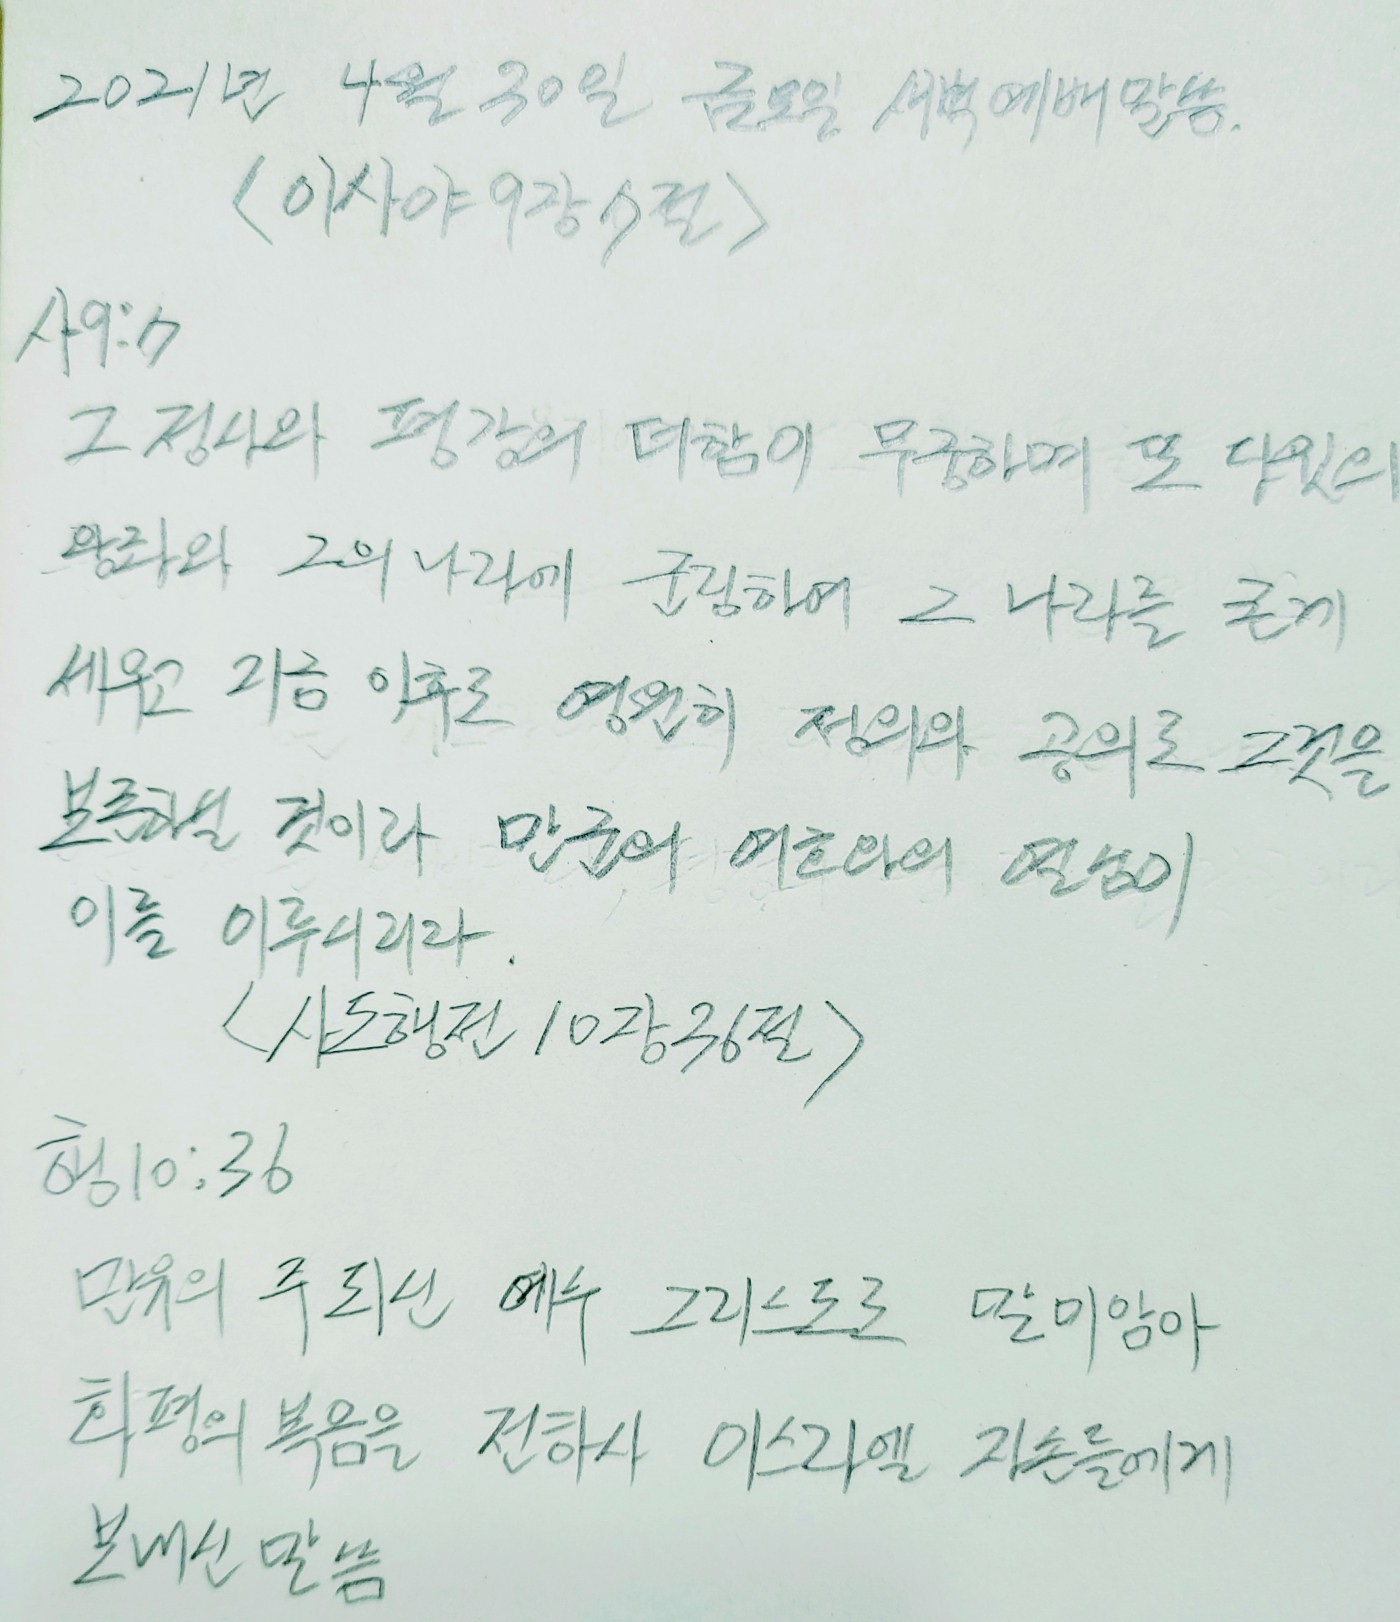 2021년 4월 30일 금요일 새벽예배말씀.
<이사야 9장 7절>
사9:7
그 정사와 평강의 더함이 무궁하며 또 다윗의
왕좌와 그의 나라에 군림하여 그 나라를 굳게
세우고 지금 이후로 영원히 정의와 공의로 그것을
보존하실 것이라 만군의 여호와의 열심이
이를 이루시리라.
<사도행전 10장 36절>
행10:36
만유의 주 되신 예수 그리스도로 말미암아
화평의 복음을 전하사 이스라엘 자손들에게
보내신 말씀